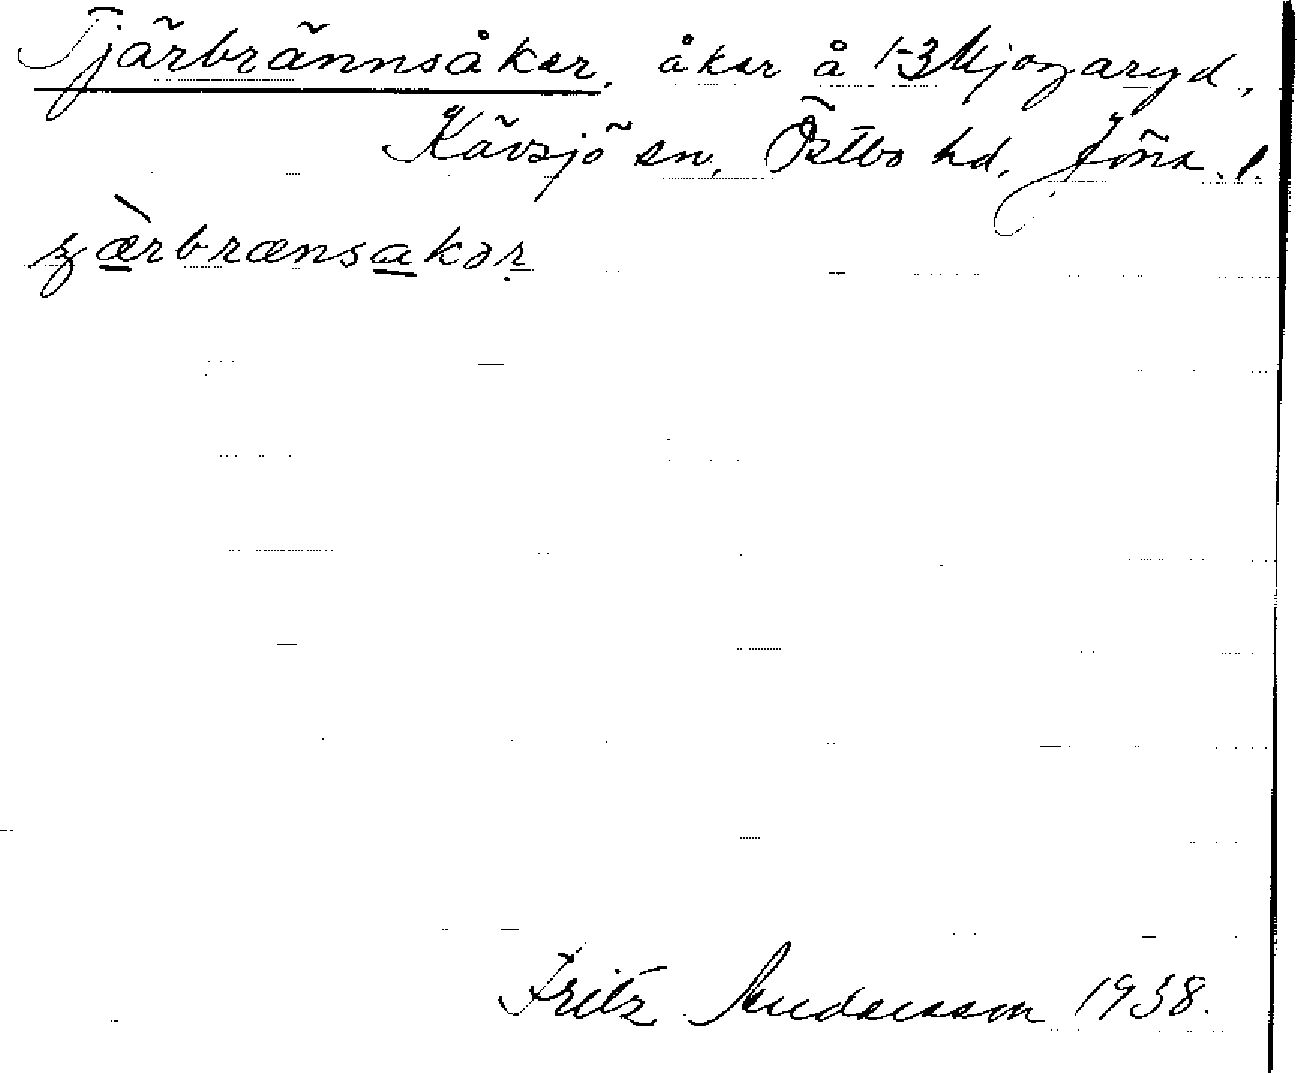 Tjärbrännsåker, åker å 1-3 Mjogaryd,
Kävsjö sn, Östbo hd, Jönk. l.
ʒærbrænsakər
Fritz Andersson 1938.